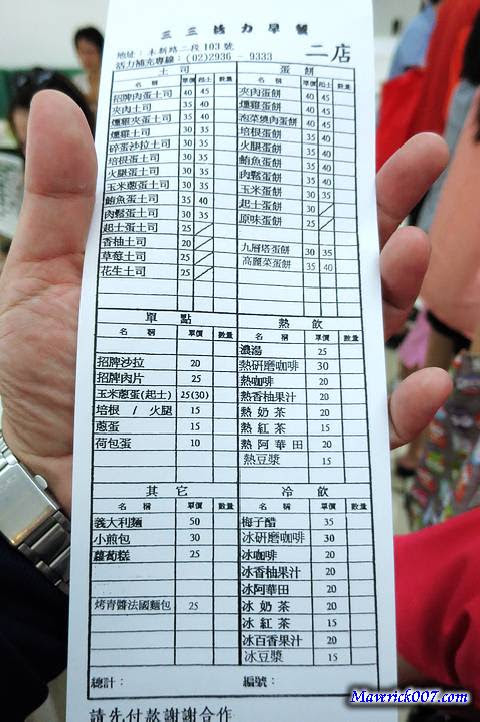 三三活力早餐
地址:木新路二段103號
活力補充專線:(02)2936 - 9333
二店
土司
名稱 單價 起士 數量
招牌肉蛋土司 40 45
夾肉土司 35 40
燻雞夾蛋土司 35 40
燻雞土司 30 35
碎蛋沙拉土司 30 35
培根蛋土司 30 35
火腿蛋土司 30 35
玉米蔥蛋土司 30 35
鮪魚蛋土司 35 40
肉鬆蛋土司 30 35
起士蛋土司 25
香柚土司 20
草莓土司 25
花生土司 25
蛋餅
名稱 單價 起士 數量
夾肉蛋餅 40 45
燻雞蛋餅 40 45
泡菜燒肉蛋餅 40 45
培根蛋餅 35 40
火腿蛋餅 35 40
鮪魚蛋餅 35 40
肉鬆蛋餅 35 40
玉米蛋餅 30 35
起士蛋餅 30
原味蛋餅 25
九層塔蛋餅 30 35
高麗菜蛋餅 35 40
單點
名稱 單價 數量
招牌沙拉 20
招牌肉片 25
玉米蔥蛋(起士) 25(30)
培根 / 火腿 15
蔥蛋 15
荷包蛋 10
熱飲
名稱 單價 數量
濃湯 25
熱研磨咖啡 30
熱咖啡 20
熱香柚果汁 20
熱奶茶 20
熱紅茶 15
熱阿華田 20
熱豆漿 15
其它
名稱 單價 數量
義大利麵 50
小煎包 30
蘿蔔糕 25
烤青醬法國麵包 25
冷飲
名稱 單價 數量
梅子醋 35
冰研磨咖啡 30
冰咖啡 20
冰香柚果汁 20
冰阿華田 20
冰奶茶 20
冰紅茶 15
冰百香果汁 20
冰豆漿 15
總計: 編號:
請先付款謝謝合作
Maverick007.com